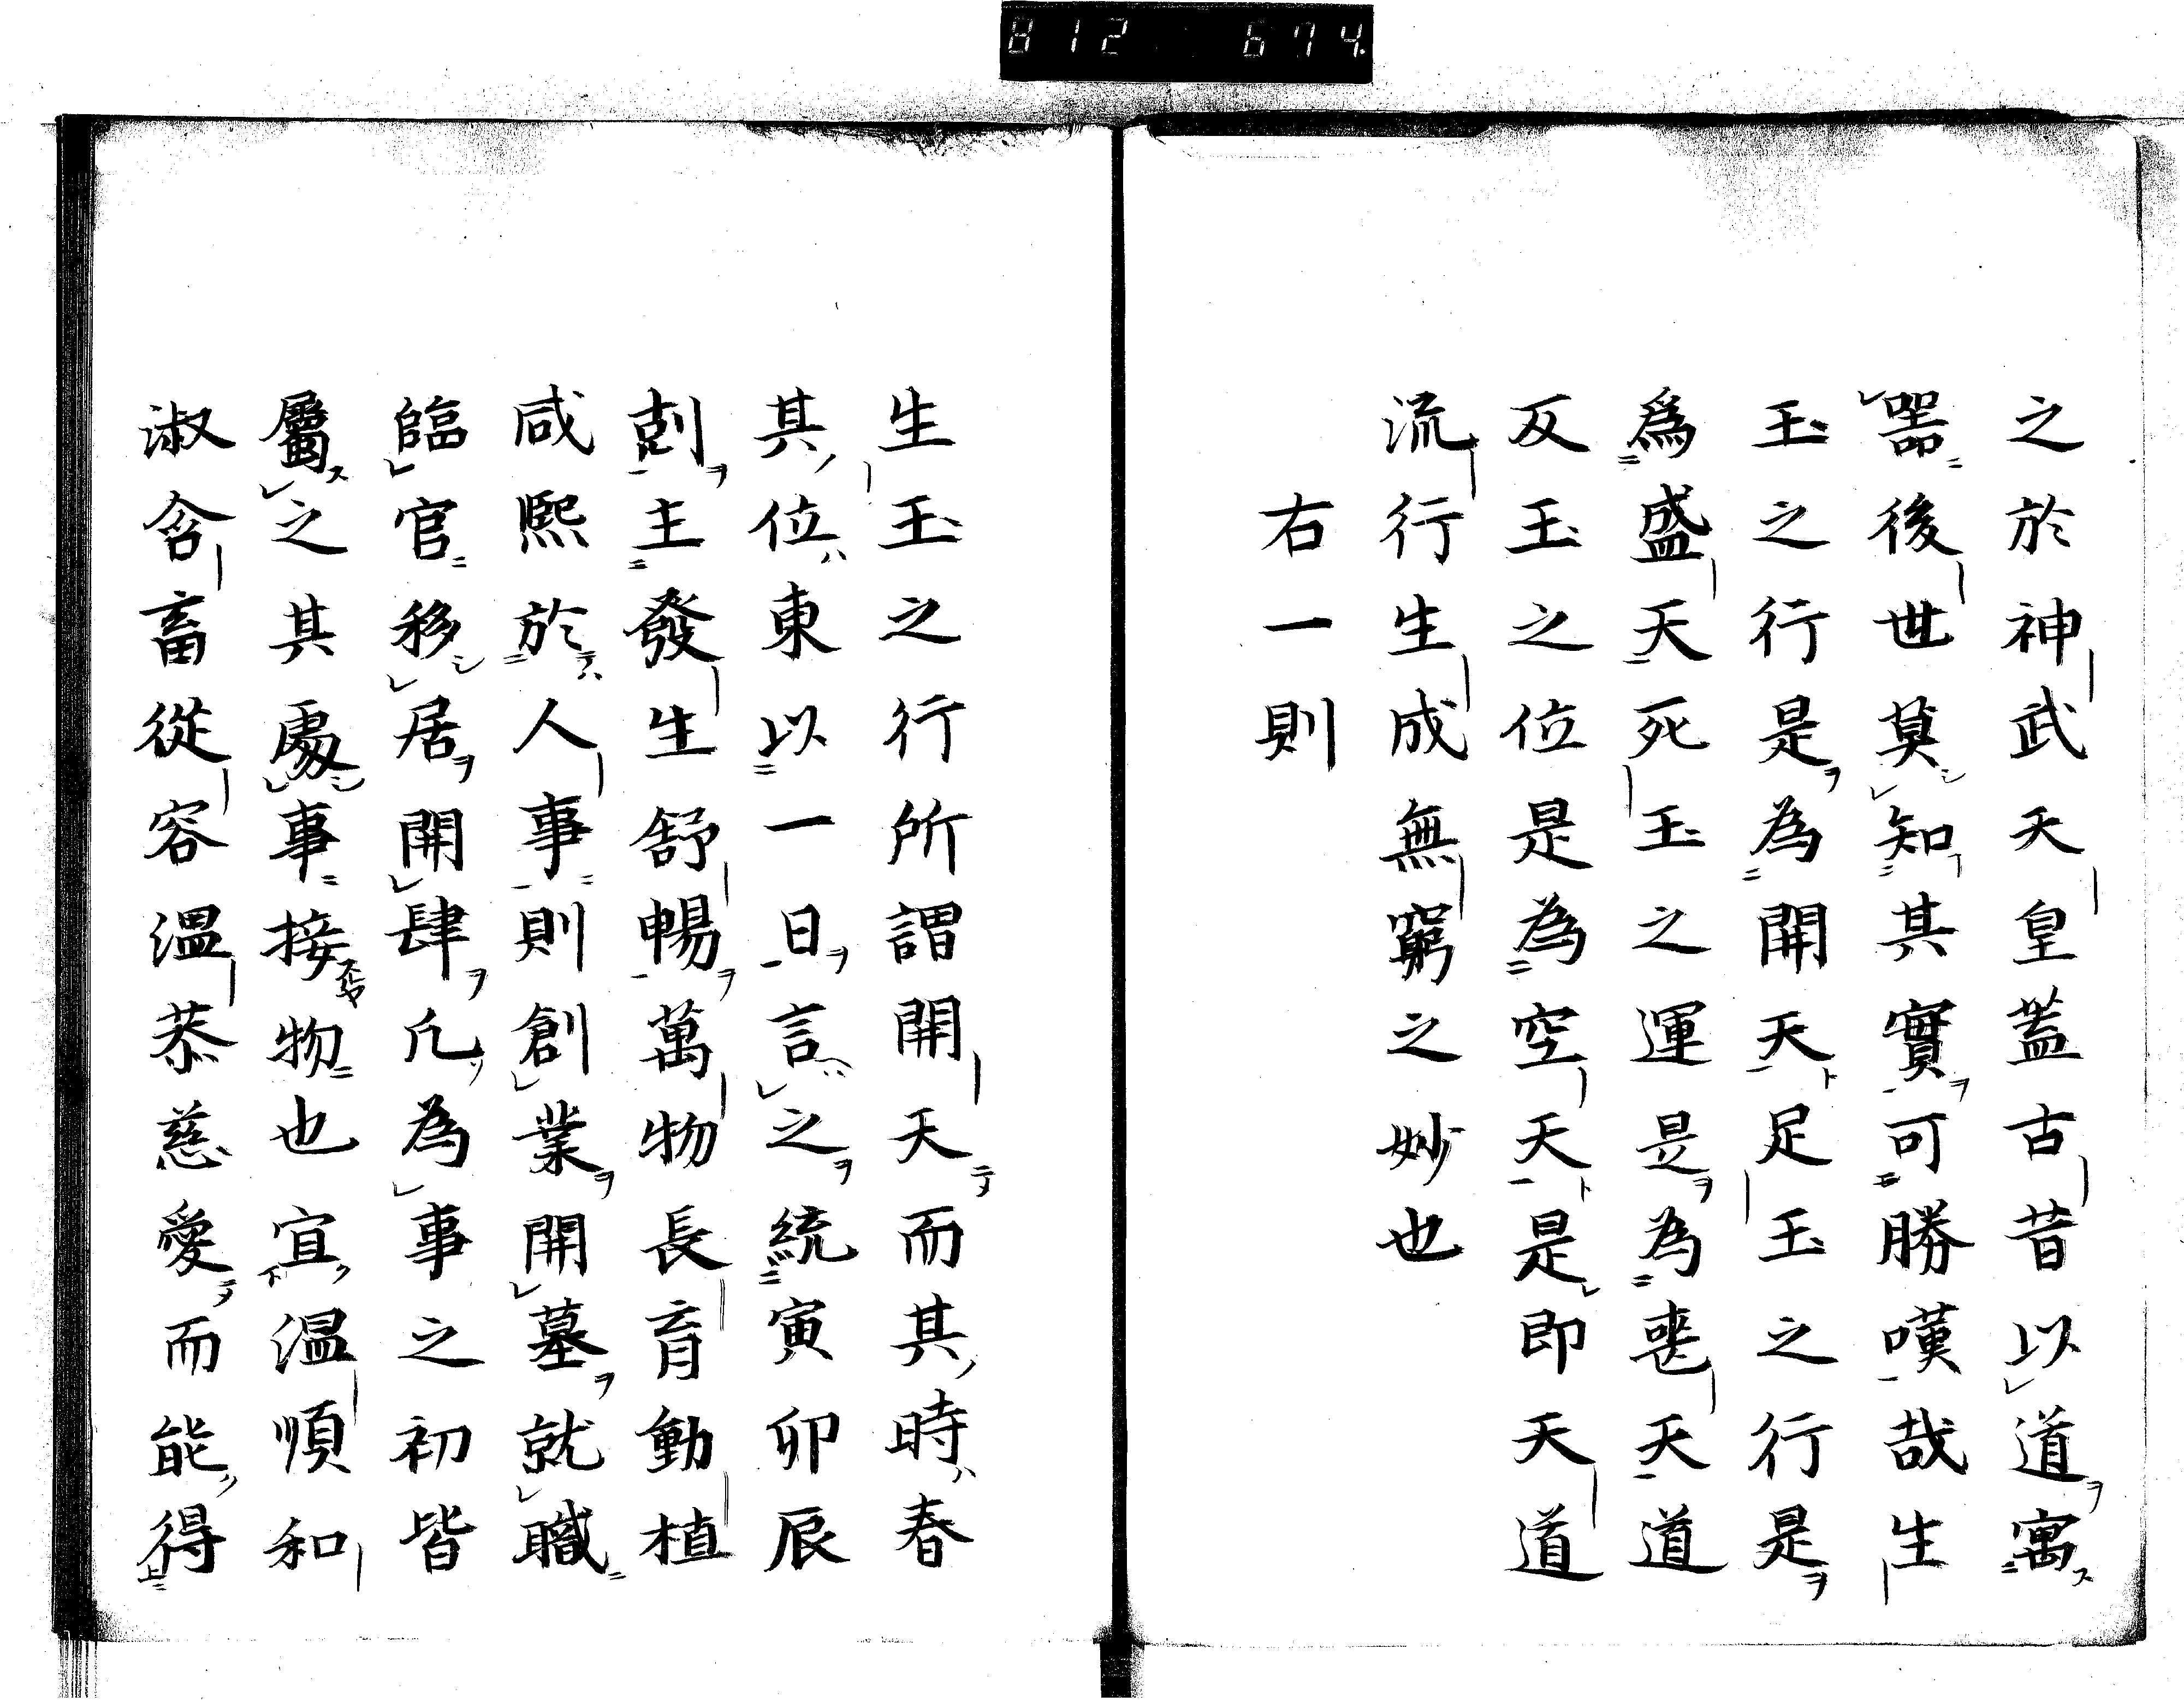 812 674
之於神武天皇蓋古昔以道寓
器後世莫知其實可勝嘆哉生
玉之行是為開天足玉之行是
為盛天死玉之運是為喪天道
反玉之位是為空天是即天道
流行生成無窮之妙也
右一則
生玉之行所謂開天而其時春
其位東以一日言之統寅卯辰
剋主發生舒暢萬物長育動植
咸熙於人事則創業開墓就職
臨官移居開肆凡為事之初皆
屬之其處事接物也宜温順和
淑含畜從容温恭慈愛而能得